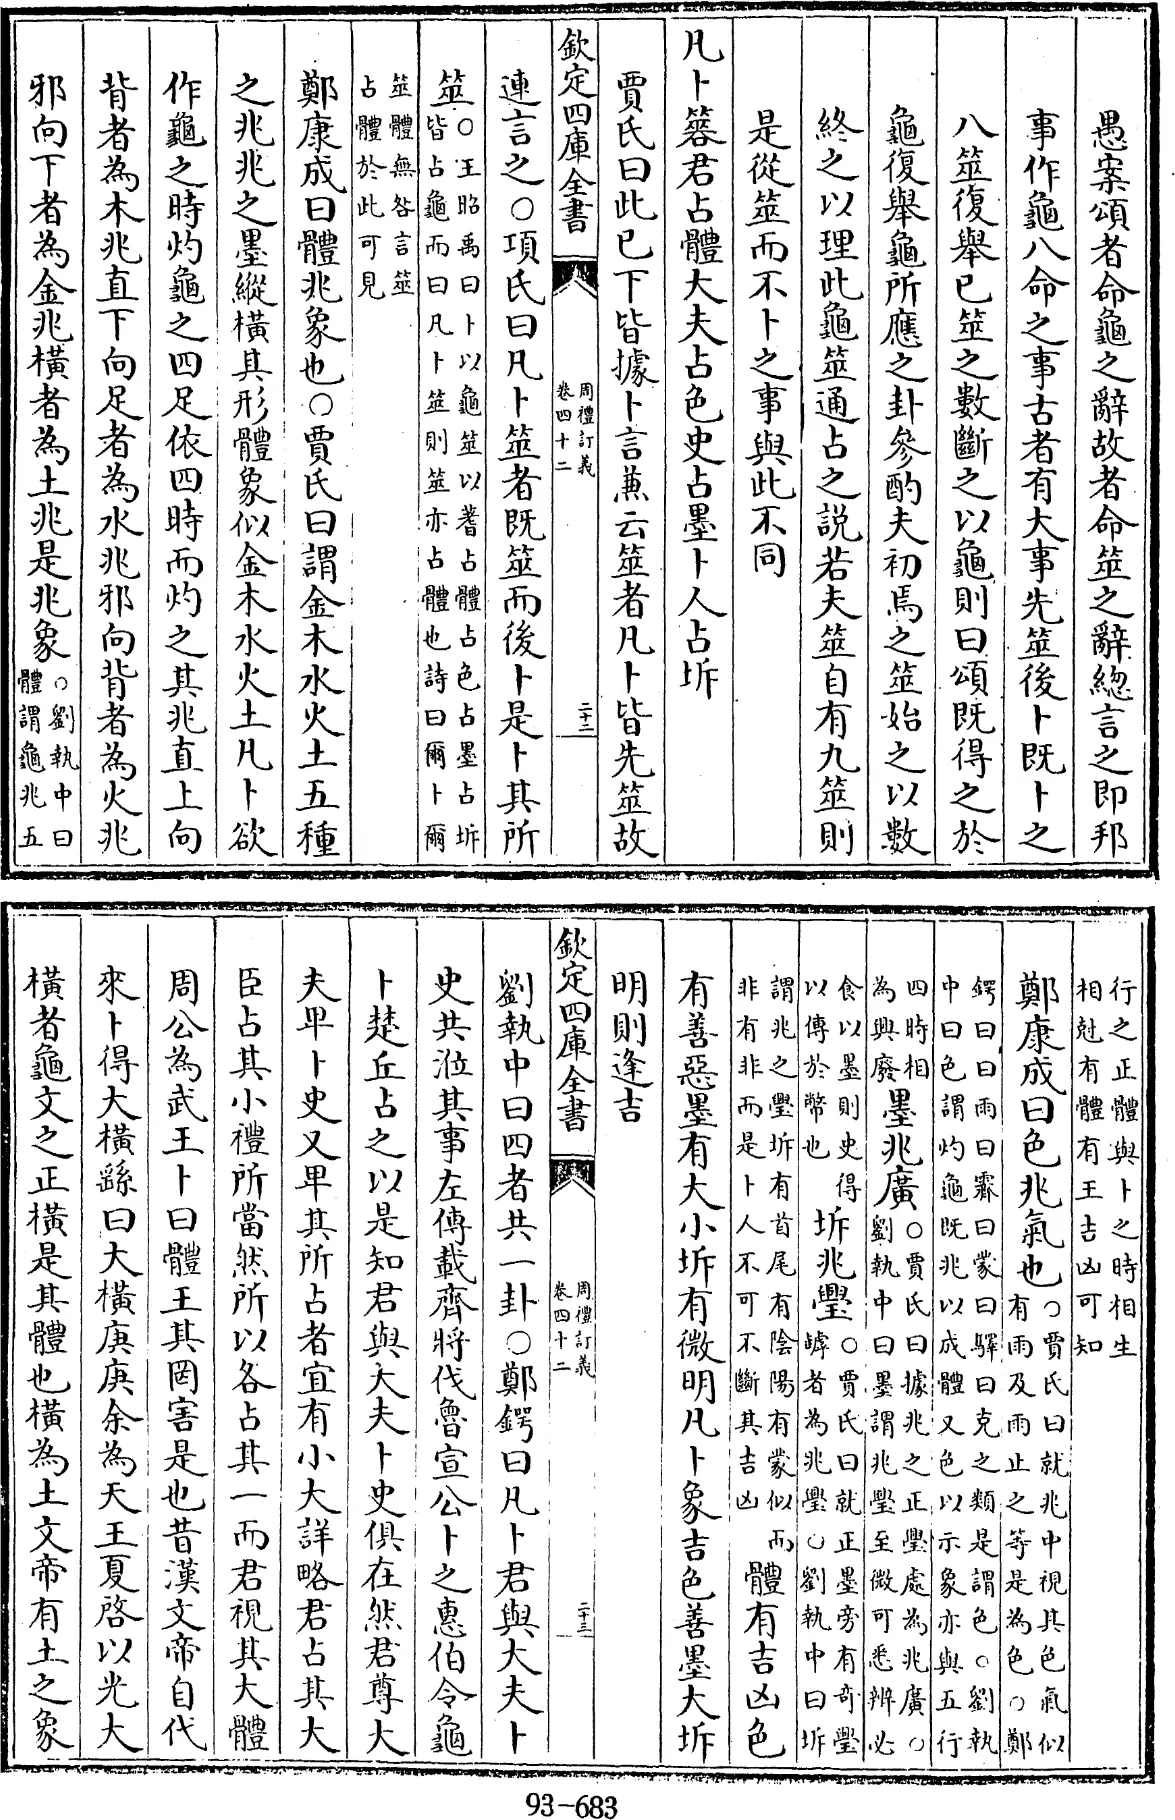 愚案頌者命龜之辭故者命筮之辭緫言之即邦
事作龜八命之事古者有大事先筮後卜既卜之
八筮復舉已筮之數斷之以龜則曰頌既得之於
龜復舉龜所應之卦參酌夫初焉之筮始之以數
終之以理此龜筮通占之説若夫筮自有九筮則
是從筮而不卜之事與此不同
凡卜簭君占體大夫占色史占墨卜人占坼
賈氏曰此已下皆據卜言兼云筮者凡卜皆先筮故
欽定四庫全書
周禮訂義
卷四十二
二十二
連言之○項氏曰凡卜筮者既筮而後卜是卜其所
筮○王昭禹曰卜以龜筮以蓍占體占色占墨占坼
皆占龜而曰凡卜筮則筮亦占體也詩曰爾卜爾
筮體無咎言筮
占體於此可見
鄭康成曰體兆象也○賈氏曰謂金木水火土五種
之兆兆之墨縱橫其形體象似金木水火土凡卜欲
作龜之時灼龜之四足依四時而灼之其兆直上向
背者為木兆直下向足者為水兆邪向背者為火兆
邪向下者為金兆橫者為土兆是兆象○劉執中曰
體謂龜兆五
行之正體與卜之時相生
相尅有體有王吉凶可知
鄭康成曰色兆氣也○賈氏曰就兆中視其色氣似
有雨及雨止之等是為色○鄭
鍔曰曰雨曰霽曰蒙曰驛曰克之類是謂色○劉執
中曰色謂灼龜既兆以成體又色以示象亦與五行
四時相
為興廢墨兆廣○賈氏曰據兆之正璺處為兆廣○
劉執中曰墨謂兆璺至微可悉辨必
食以墨則史得
以傳於幣也坼兆璺○賈氏曰就正墨旁有奇璺
罅者為兆璺○劉執中曰坼
謂兆之璺坼有首尾有陰陽有蒙似而
非有非而是卜人不可不斷其吉凶體有吉凶色
有善惡墨有大小坼有微明凡卜象吉色善墨大坼
明則逢吉
欽定四庫全書
周禮訂義
卷四十二
二十三
劉執中曰四者共一卦○鄭鍔曰凡卜君與大夫卜
史共涖其事左傳載齊將伐魯宣公卜之惠伯令龜
卜楚丘占之以是知君與大夫卜史俱在然君尊大
夫卑卜史又卑其所占者宜有小大詳略君占其大
臣占其小禮所當然所以各占其一而君視其大體
周公為武王卜曰體王其罔害是也昔漢文帝自代
來卜得大橫繇曰大橫庚庚余為天王夏啓以光大
橫者龜文之正橫是其體也橫為土文帝有土之象
93-683